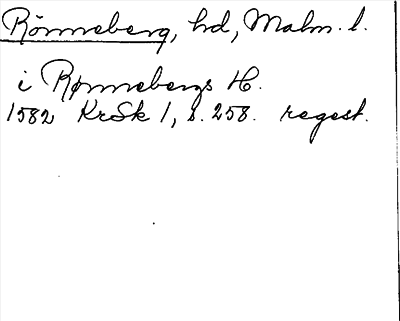 Rönneberg, hd, Malm. l.
i Rønnebergs H.
1582 KrSk 1, s. 258. regest.